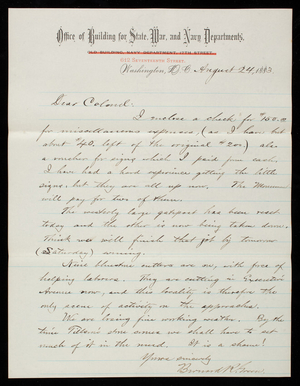 Office of Building for State, War, and Navy Departments,
615 Seventeenth Street.
Washington, D. C. August 24, 1883.
Dear Colonel:
I inclose a check for $150.00
for miscellaneous expenses, (as I have but
about $40. left of the original $200) also
a voucher for signs which I paid from cash.
I have had a hard experience getting the little
signs; but they are all up now. The Museum
will pay for two of them.
The westerly large gatepost has been reset
today and the other is now being taken down.
Think we will finish that job by tomorrow
(Saturday) evening.
Nine bluestone cutters are on, with force of
helping laborers. They are cutting in Executive
Avenue now, and this locality is perhaps the
only scene of activity in the approaches.
We are having fine working weather. By the
time Tillson's stone comes we shall have to set
much of it in the mud. It is a shame!
Yours sincerely
Bernard R. Green